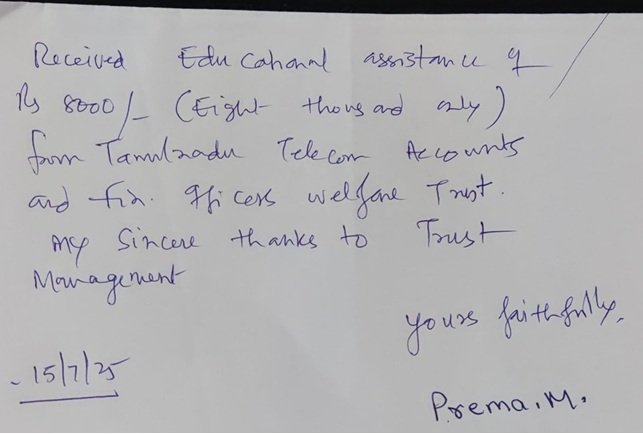 Received Educational assistance of
Rs 8000/- (Eight thousand only)
from Tamilnadu Telecom Accounts
and fin. officers welfare Trust.
My Sincere thanks to Trust
Management
yours faithfully,
15/7/25
Prema.M.